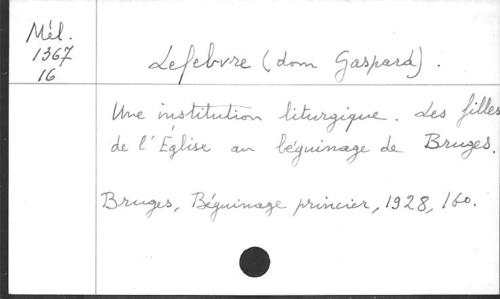 Mél.
1367
16
Lefebvre (dom Gaspard).
Une institution liturgique. Les filles
de l'Église au béguinage de Bruges.
Bruges, Béguinage princier, 1928, 16o.